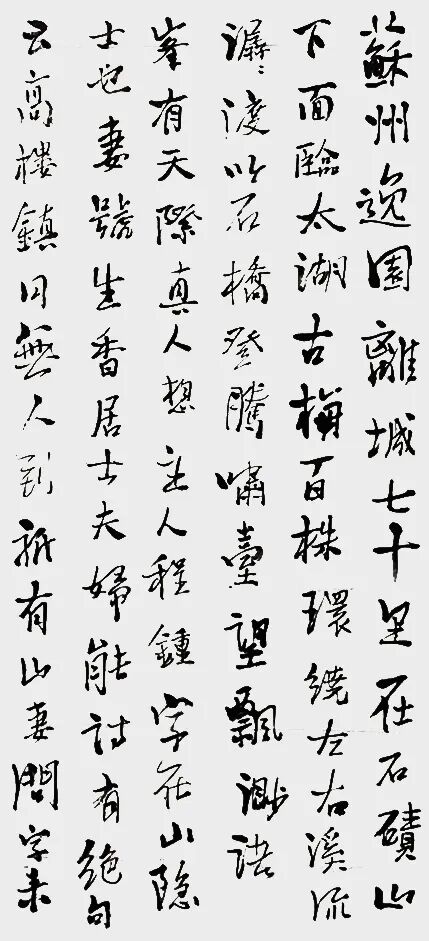 蘇州逸園離城七十里在石磧山
下面臨太湖古梅百株環繞左右溪流
潺〻渡以石橋登騰嘯臺望飄渺諸
峯有天際真人想主人程鍾字在山隐
士也妻號生香居士夫婦能詩有絕句
云高楼鎮日無人到祇有山妻問字来